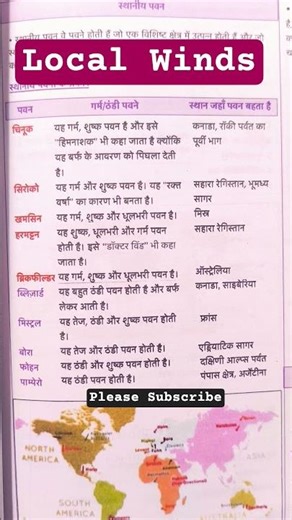 स्थानीय पवन
स्थानीय पवन वे पवनें होती हैं जो एक विशिष्ट क्षेत्र में उत्पन्न होती हैं और जो
Local Winds
पवन गर्म/ठंडी पवनें स्थान जहाँ पवन बहता है
चिनूक यह गर्म, शुष्क पवन है और इसे कनाडा, रॉकी पर्वत का
"हिमनाशक" भी कहा जाता है क्योंकि पूर्वी भाग
यह बर्फ के आवरण को पिघला देती
है।
सिरोको यह गर्म और शुष्क पवन है। यह "रक्त सहारा रेगिस्तान, भूमध्य
वर्षा" का कारण भी बनता है। सागर
खमसिन यह गर्म, शुष्क और धूलभरी पवन है। मिस्र
हरमट्टन यह शुष्क, धूलभरी और गर्म पवन सहारा रेगिस्तान
होती है। इसे "डॉक्टर विंड" भी कहा
जाता है।
ब्रिकफील्डर यह गर्म, शुष्क और धूलभरी पवन है। ऑस्ट्रेलिया
ब्लिज़ार्ड यह बहुत ठंडी पवन होती है और बर्फ कनाडा, साइबेरिया
लेकर आती है।
मिस्ट्रल यह तेज, ठंडी और शुष्क पवन होती फ्रांस
है।
बोरा यह तेज और ठंडी पवन होती है। एड्रियाटिक सागर
फोहन यह ठंडी और शुष्क पवन होती है। दक्षिणी आल्प्स पर्वत
पाम्पेरो यह ठंडी पवन होती है। पंपास क्षेत्र, अर्जेंटीना
Please Subscribe
NORTH
AMERICA
ASIA
SOUTH
AMERICA